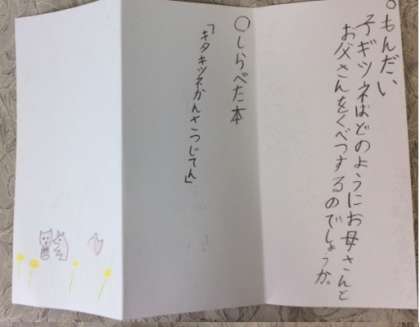 ○もんだい
子ギツネはどのようにお母さんと
お父さんをくべつするのでしょうか。
○しらべた本
「キタキツネかんさつじてん」